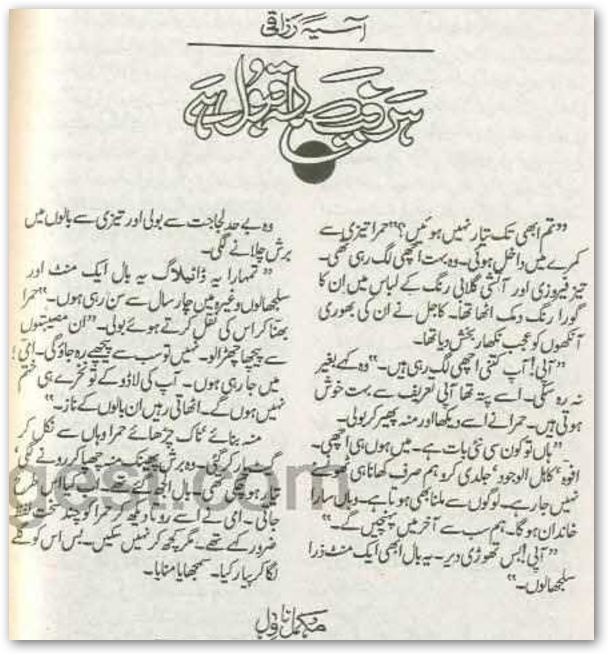 آسیہ رزاقی
ہر فیصلہ قبول ہے
”تم ابھی تک تیار نہیں ہوئیں؟“ حمرا تیزی سے
کمرے میں داخل ہوئی۔ وہ بہت اچھی لگ رہی تھی۔
تیز فیروزی اور آتشی گلابی رنگ کے لباس میں ان کا
گورا رنگ دمک اٹھا تھا۔ کاجل نے ان کی بھوری
آنکھوں کو عجب نکھار بخش دیا تھا۔
”آپی! آپ کتنی اچھی لگ رہی ہیں۔“ وہ کہے بغیر
نہ رہ سکی۔ اسے پتہ تھا آپی تعریف سے بہت خوش
ہوتی ہیں۔ حمرا نے اسے دیکھا اور منہ پھیر کر بولی۔
”ہاں تو کون سی نئی بات ہے۔ میں ہوں ہی اچھی۔
افوہ ‘ کاہل الوجود‘ جلدی کرو ہم صرف کھانا ہی ٹھونسنے
نہیں جا رہے۔ لوگوں سے ملنا بھی ہوتا ہے۔ وہاں سارا
خاندان ہو گا۔ ہم سب سے آخر میں پہنچیں گے۔“
”آپی! بس تھوڑی دیر۔ یہ بال ابھی ایک منٹ ذرا
سلجھا لوں۔“
وہ بے حد لجاجت سے بولی اور تیزی سے بالوں میں
برش چلانے لگی۔
”تمہارا یہ ڈائیلاگ یہ بال ایک منٹ اور
سلجھا لوں وغیرہ میں چار سال سے سن رہی ہوں۔“ حمرا
بھنا کر اس کی نقل کرتے ہوئے بولی۔ ”ان مصیبتوں
سے پیچھا چھڑا لو۔ نہیں تو سب سے پیچھے رہ جاؤ گی۔ امی!
میں جا رہی ہوں۔ آپ کی لاڈو کے تو نخرے ہی ختم
نہیں ہوں گے۔ اٹھاتی رہیں ان بالوں کے ناز۔“
منہ بنائے‘ ناک چڑھائے حمرا وہاں سے نکل کر
گیٹ پار کر گئی۔ وہ برش پھینک منہ چھپا کر رونے لگی‘
تیار ہو چکی تھی۔ بال الجھ گئے تھے۔ کیسے اس طرح
جاتی۔ امی نے اسے روتا دیکھ کر حمرا کو چند سخت لفظ
ضرور کہے تھے۔ مگر کچھ کر نہیں سکیں۔ بس اس کو گلے
لگا کر پیار کیا۔ سمجھایا منایا۔
مکمل ناول
gest.com